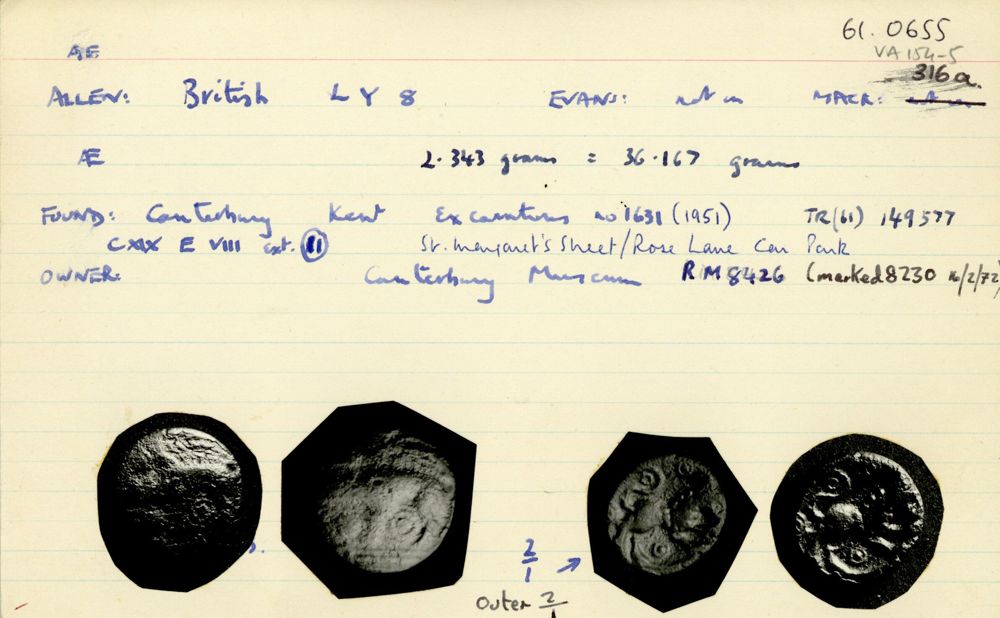 61.0655
VA 154-5
Æ
316a
ALLEN: British L Y 8 EVANS: not in MACK: not in
Æ 2.343 grams = 36.167 grams
FOUND: Canterbury Kent Excavations no 1631 (1951) TR(61) 149577
CXIX E VIII ext. 11 St. Margaret's Street/Rose Lane Car Park
OWNER: Canterbury Museum RM 8426 (marked 8230 16/2/72)
2/1
Outer 2/1